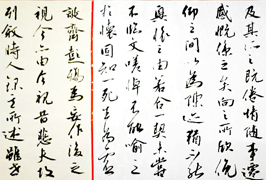 及其所之既倦情隨事遷
感慨係之矣向之所欣俛
仰之間以為陳迹猶不能
興懷之由若合一契未嘗
不臨文嗟悼不能喻之
於懷固知一死生為虛
誕齊彭殤為妄作後之
視今亦由今視昔悲夫故
列敘時人錄其所述雖世